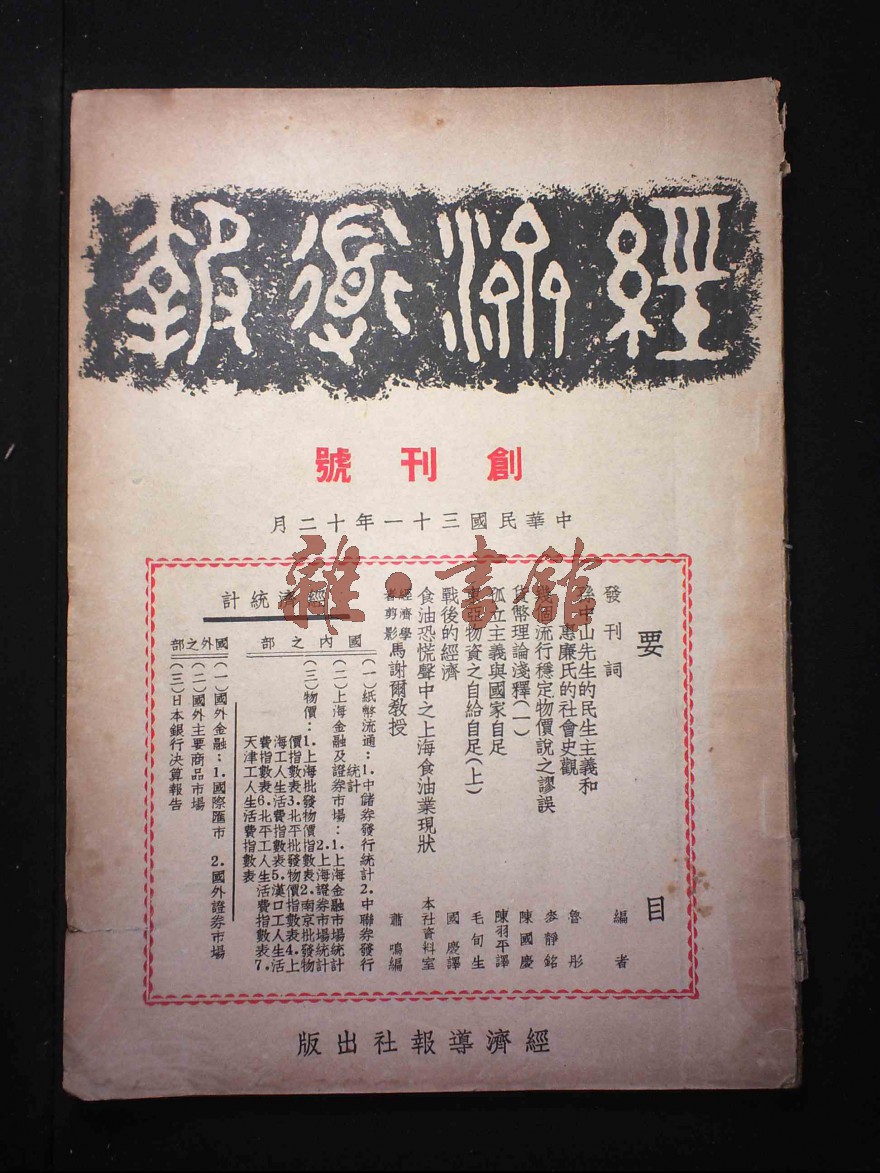 經濟導報
創刊號
中華民國三十一年十二月
要目
發刊詞 編者
孫中山先生的民生主義和
惠廉氏的社會史觀 魯彤
幾個流行穩定物價說之謬誤 麥靜銘
貨幣理論淺釋(一) 陳國慶
孤立主義與國家自足 陳羽平譯
東亞物資之自給自足(上) 毛旬生
戰後的經濟 國慶譯
食油恐慌聲中之上海食油業現狀 本社資料室
經濟學者剪影 馬謝爾教授 蕭鳴編
經濟統計
國內之部
(一)紙幣流通:1.中儲券發行統計2.中聯券發行
統計
(二)上海金融及證券市場:1.上海金融市場統計
2.上海證券市場統計
(三)物價:1.上海批發物價指數表2.南京批發物
價指數表3.北平批發物價指數表4.上
海工人生活費指數表5.漢口工人生活
費指數表6.北平工人生活費指數表7.
天津工人生活費指數表
國外之部
(一)國外金融:1.國際匯市 2.國外證券市場
(二)國外主要商品市場
(三)日本銀行決算報告
經濟導報社出版
雜·書館